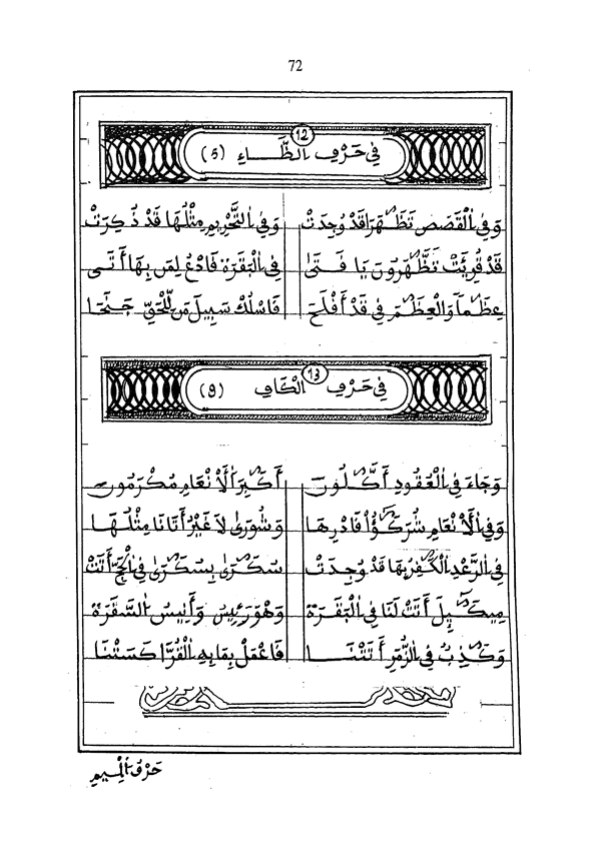 72
12
في حَرْفِ الظَّاءِ (5)
وَفِي اْلقَصَصِ تَظَٰهَرَا قَدْ وُجِدَتْ وَفِي اْلتَّحْرِيمِ مِثْلُهَا قَدْ ذُكِرَتْ
قَدْ قُرِئَتْ تَظَّٰهَرُونَ يَا فَتَىٰ فِي اْلبَقَرَةِ فَادْعُ لِمَن بِهَا أَتَى
عِظَٰماً وَالْعِظَٰمَ فِي قَدْ أَفْلَحَ فَاسْلُكْ سَبِيلَ مَن لِلْحَقِّ جَنَحَا
13
في حَرْفِ الْكَافِ (8)
وَجَاءَ فِي اْلعُقُودِ أَكَّٰلُونَ أَكَٰبِرَ اْلأَنْعَامِ مُكْرَمُونَ
وَفِي اْلأَنْعَامِ شُرَكَٰؤُا فَادْرِهَا وَشُورَىٰ لاَ غَيْرُ أَتَانَا مِثْلُهَا
فِي اْلرَّعْدِ الْكُفَّٰرُ بِهَا قَدْ وُجِدَتْ سُكَٰرَىٰ بِسُكَٰرَىٰ فِي اْلحَجِّ أَتَتْ
مِيكَٰئِيلَ أَتَتْ لَنَا فِي اْلبَقَرَةْ وَهْوَ رَئِيسُ وَأَنِيسُ اْلسَّفَرَةْ
وَكَٰذِبٌ فِي اْلزُّمَرِ أَتَتْنَا فَاعْمَلْ بِمَا بِهِ اْلقُرَّا
حَرْفُ اْلمِيمِ